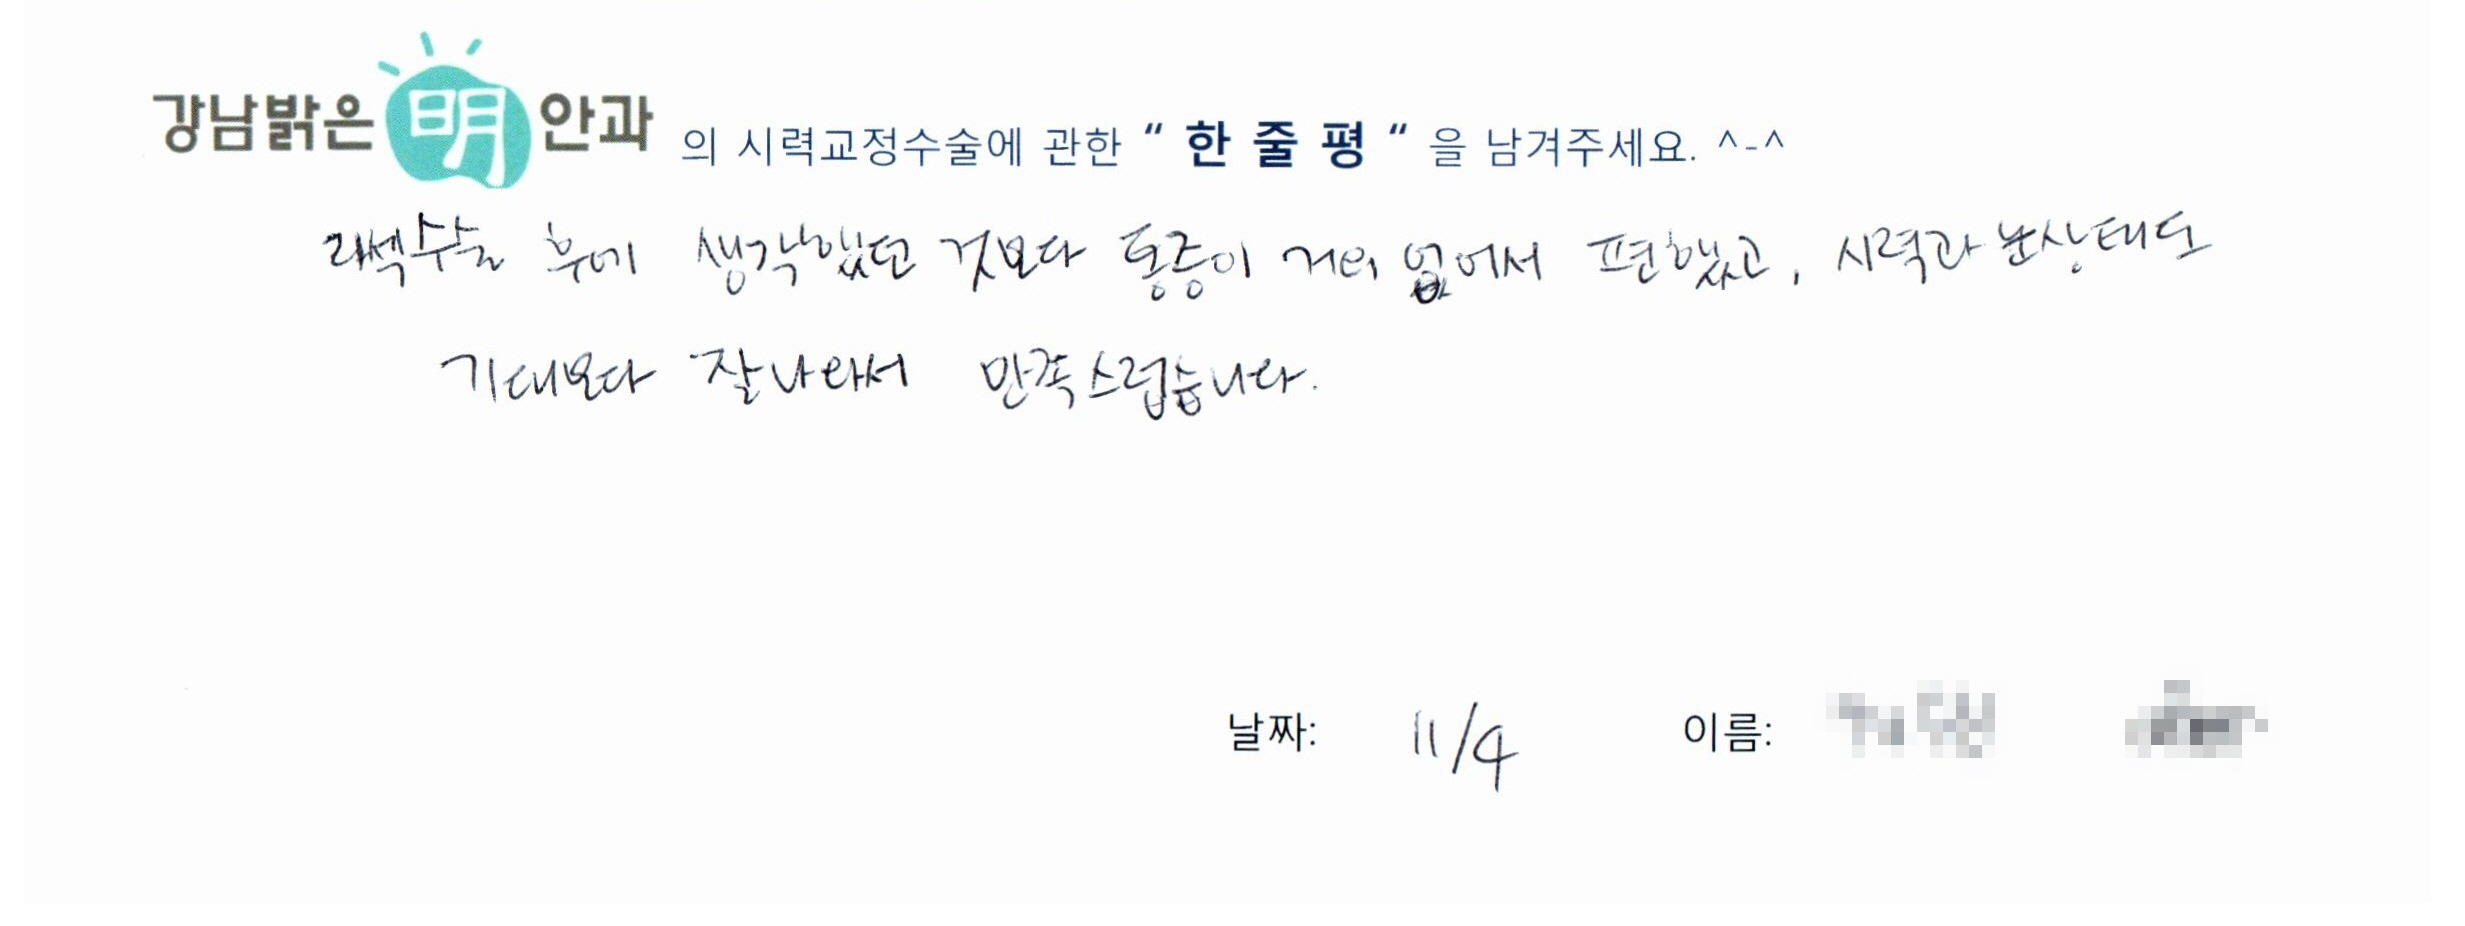 강남밝은 明 안과 의 시력교정수술에 관한 “ 한 줄 평 “ 을 남겨주세요. ^-^
라섹수술 후에 생각했던 것보다 통증이 거의 없어서 편했고, 시력과 눈상태도
기대보다 잘나와서 만족스럽습니다.
날짜: 11/4 이름: